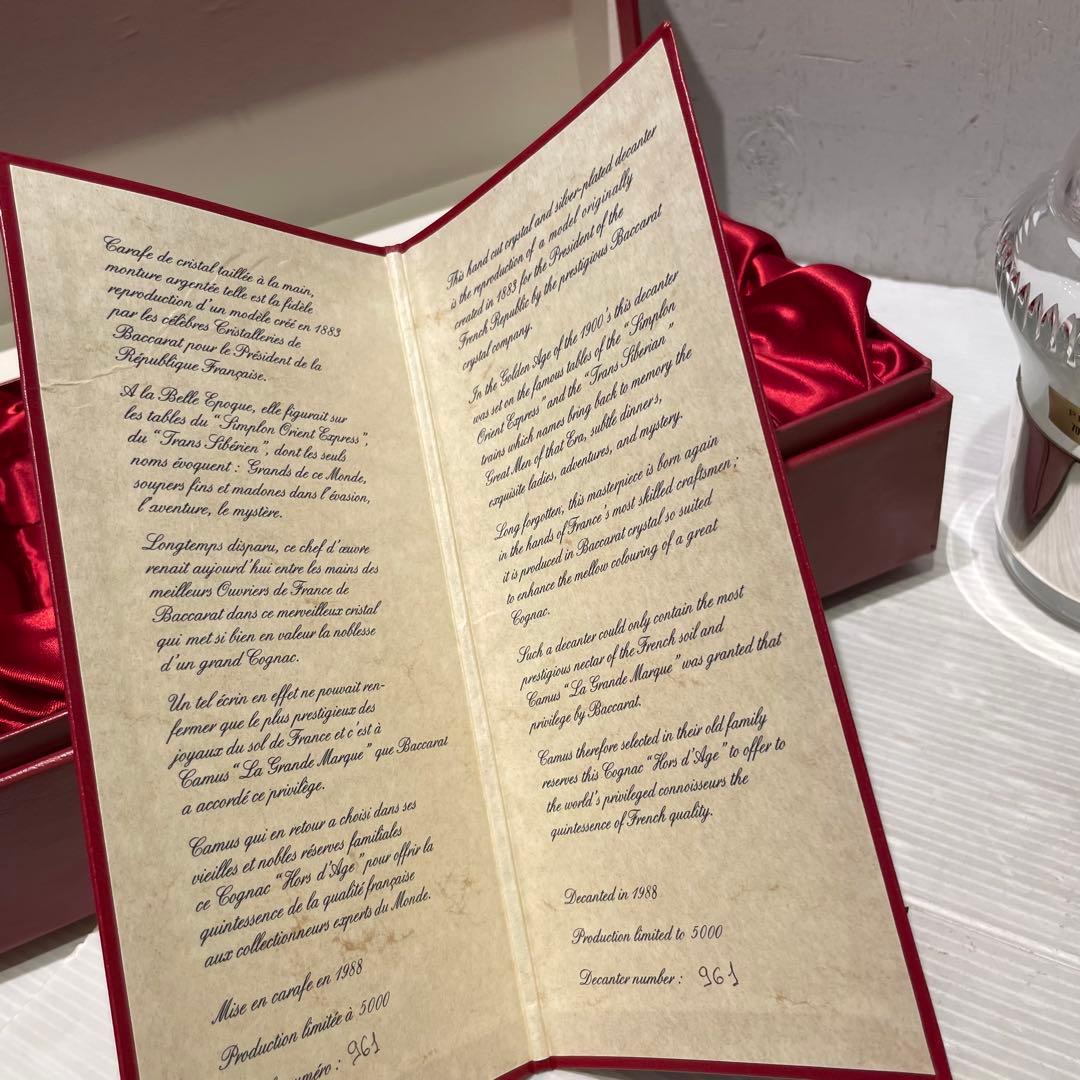 Carafe de cristal taillée à la main,
monture argentée telle est la fidèle
reproduction d'un modèle créé en 1883
par les célèbres Cristalleries de
Baccarat pour le Président de la
République Française.
A la Belle Epoque, elle figurait sur
les tables du "Simplon Orient Express",
du "Trans Sibérien", dont les seuls
noms évoquent : Grands de ce Monde,
soupers fins et madones dans l'évasion,
l'aventure, le mystère.
Longtemps disparu, ce chef d'œuvre
renait aujourd'hui entre les mains des
meilleurs Ouvriers de France de
Baccarat dans ce merveilleux cristal
qui met si bien en valeur la noblesse
d'un grand Cognac.
Un tel écrin en effet ne pouvait ren-
fermer que le plus prestigieux des
joyaux du sol de France et c'est à
Camus "La Grande Marque" que Baccarat
a accordé ce privilège.
Camus qui en retour a choisi dans ses
vieilles et nobles réserves familiales
ce Cognac "Hors d'Age" pour offrir la
quintessence de la qualité française
aux collectionneurs experts du Monde.
Mise en carafe en 1988
Production limitée à 5000
numéro : 961
This hand cut crystal and silver-plated decanter
is the reproduction of a model originally
created in 1883 for the President of the
French Republic by the prestigious Baccarat
crystal company.
In the Golden Age of the 1900's this decanter
was set on the famous tables of the "Simplon
Orient Express" and the "Trans Siberian"
trains which names bring back to memory the
Great Men of that Era, subtle dinners,
exquisite ladies, adventures, and mystery.
Long forgotten, this masterpiece is born again
in the hands of France's most skilled craftsmen ;
it is produced in Baccarat crystal so suited
to enhance the mellow colouring of a great
Cognac.
Such a decanter could only contain the most
prestigious nectar of the French soil and
Camus "La Grande Marque" was granted that
privilege by Baccarat.
Camus therefore selected in their old family
reserves this Cognac "Hors d'Age" to offer to
the world's privileged connoisseurs the
quintessence of French quality.
Decanted in 1988
Production limited to 5000
Decanter number : 961